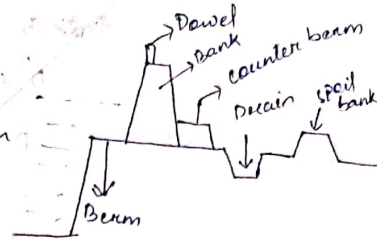 Dowel
Bank
counter berm
Drain
spoil
bank
Berm